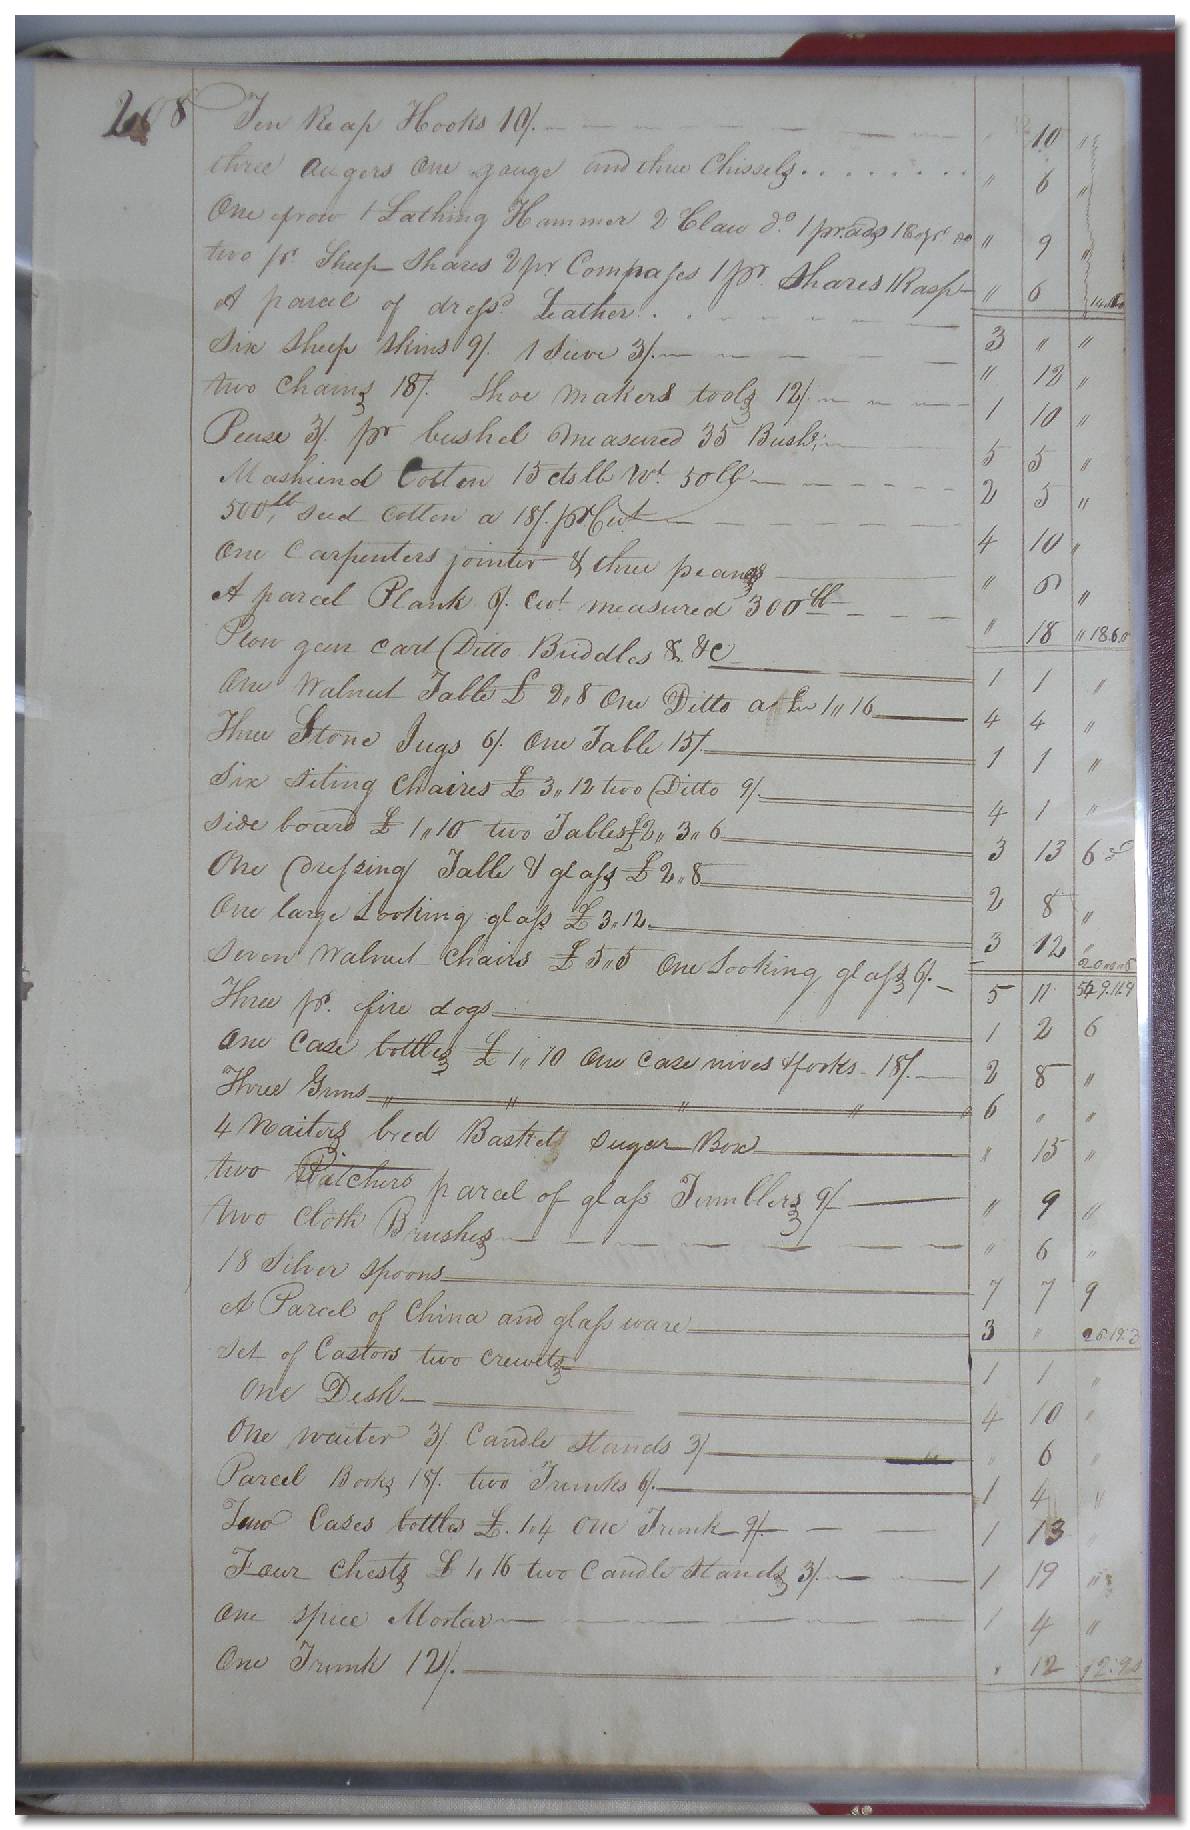 208
Ten Reap Hooks 10/. " 10 "
three augers One gouge and three Chissels " 6 "
One frow 1 Lathing Hammer 2 Claw do. 1 pr. " 9 "
two pr Sheep Shares 2 pr Compasses 1 pr Shares 1 Rasp " 6 "
A parcel of dress'd Leather 3 " "
Six Sheep Skins 9/. 1 Sieve 3/. " 12 "
two Chains 18/. Shoe makers tools 12/. 1 10 "
Pease 3/. pr bushel measured 35 Bush; 5 5 "
Mashiend Cotten 15 cts lb Wt. 50 lb 2 5 "
500 lb, seed Cotton a 18/. pr Cwt 4 10 "
One Carpenters jointer & three peans " 6 "
A parcel Plank 6/. Cwt measured 300 lb " 18 " 18.6.0
Plow gear cart Ditto Briddles & &C 1 1 "
One Walnut Table £ 2,,8 One Ditto at 1,,16 4 4 "
Three Stone Jugs 6/. One Table 15/. 1 1 "
Six Siting Chaires £ 3,,12 two Ditto 9/. 4 1 "
Side board £ 1,,10 two Tables £2,,3,,6 3 13 6
One Dressing Table & glass £ 2,,8 2 8 "
One large Looking glass £ 3,,12 3 12 "
Seven Walnut Chairs £ 5,,5 One Looking glass 6/. 5 11 "
Three pr. fire dogs 1 2 6
One Case bottles £ 1,,10 One Case nives & forks 18/. 2 8 "
Three Guns " " " " " 6 " "
4 Waiters bred Basket Sugar Box " 15 "
two Pitchers parcel of glass Tumblers 9/ " 9 "
two Cloth Brushes " 6 "
18 Silver Spoons 7 7 9
A Parcel of China and glass ware 3 "
Set of Castors two crewets 1 1 "
One Desk 4 10 "
One waiter 3/. Candle Stands 3/ " 6 "
Parcel Books 18/. two Trunks 6/. 1 4 "
Two Cases bottles £ 1.4 One Trunk 9/. 1 13 "
Four Chests £ 1,,16 two Candle Stands 3/. 1 19 "
One Spice Mortar 1 4 "
One Trunk 12/. " 12